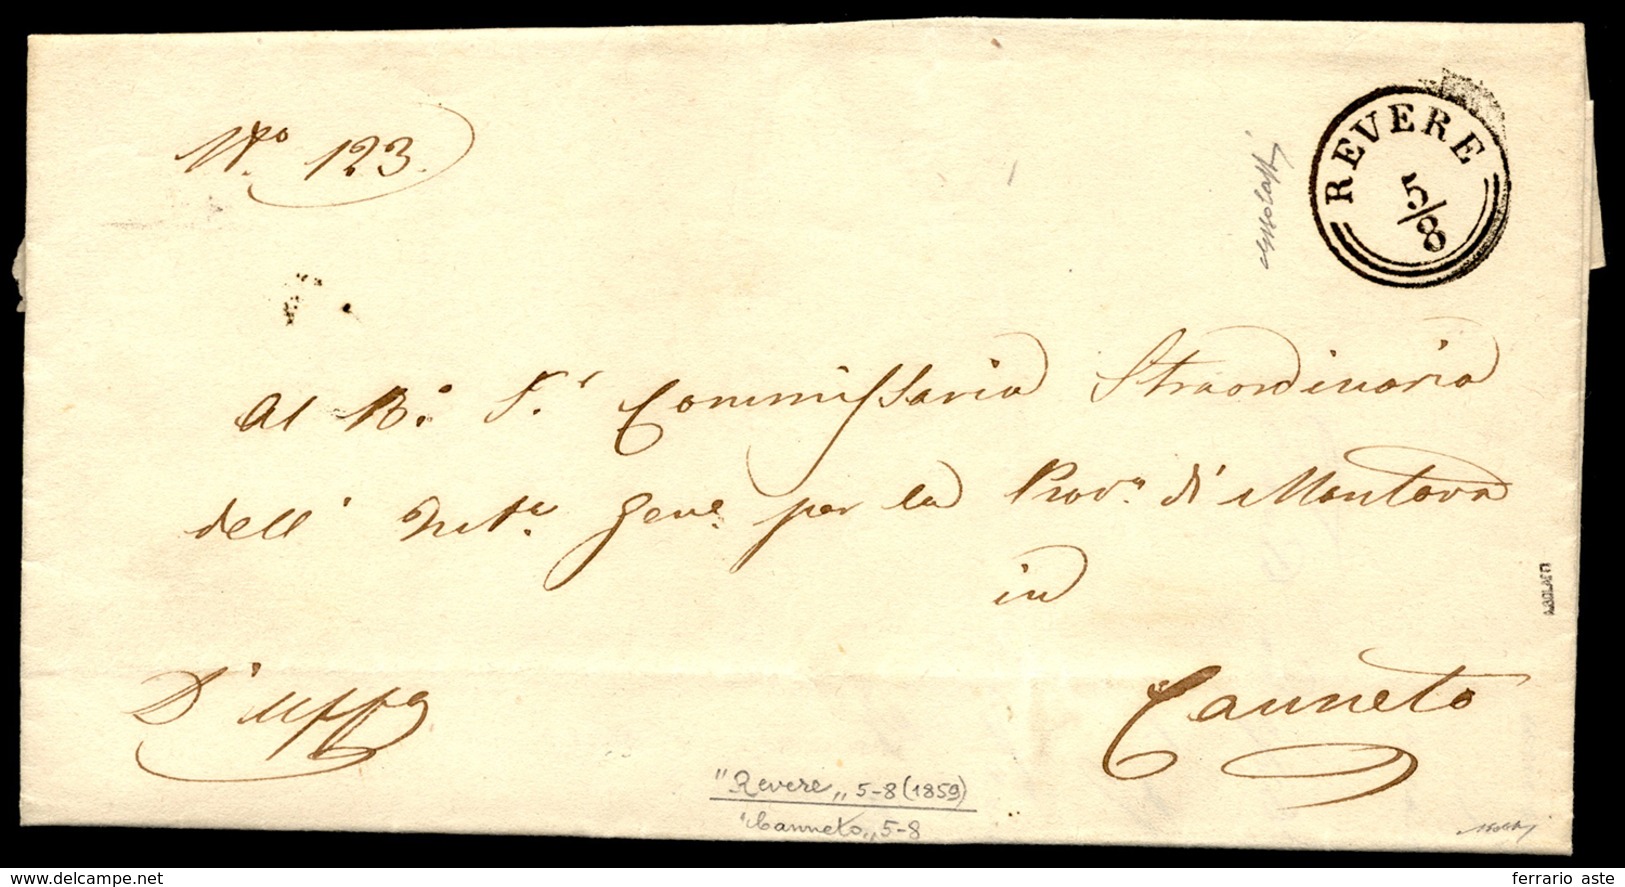 No. 123.
REVERE
5/8
Al R.o F.e Commissario Straordinario
dell' Int.a Gen.e per la Prov.a di Mantova
in
D'uffo
Canneto
"Revere" 5-8 (1859)
"Canneto" 5-8
www.delcampe.net
ferrario aste